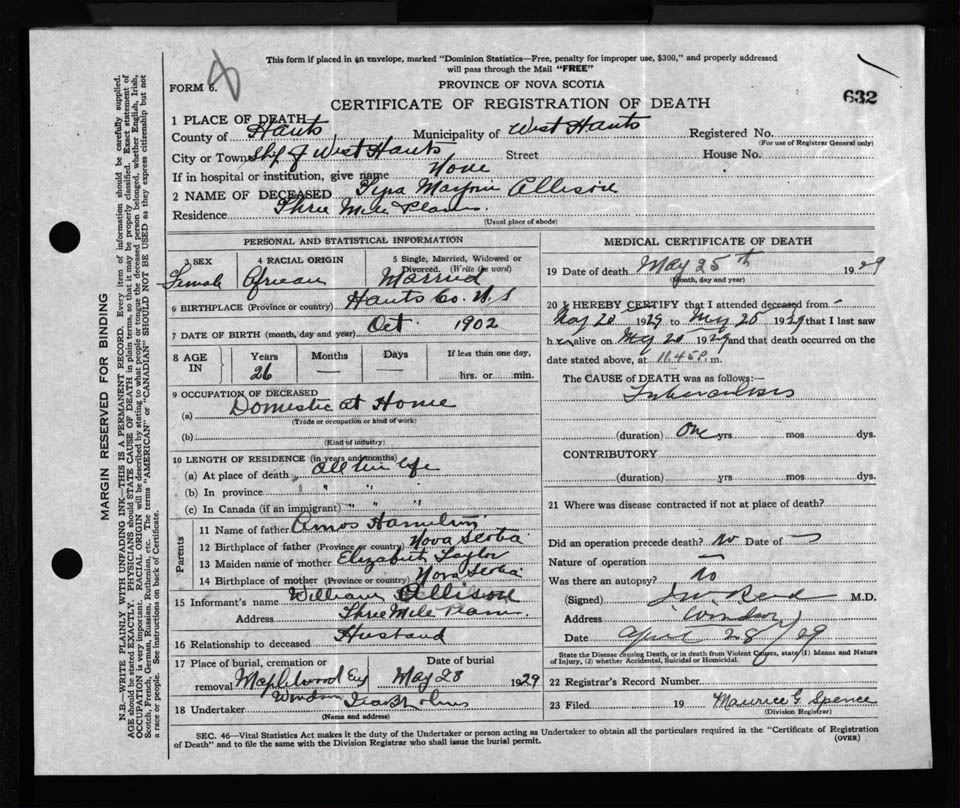 This form if placed in an envelope, marked "Dominion Statistics—Free, penalty for improper use, $300," and properly addressed
will pass through the Mail "FREE"
FORM 6.
PROVINCE OF NOVA SCOTIA
CERTIFICATE OF REGISTRATION OF DEATH
632
1 PLACE OF DEATH
County of Hants Municipality of West Hants Registered No.
(For use of Registrar General only)
City or Town Shp of West Hants Street House No.
If in hospital or institution, give name None
2 NAME OF DECEASED Marjorie Allison
Residence Three Mile Plains
(Usual place of abode)
PERSONAL AND STATISTICAL INFORMATION
3 SEX 4 RACIAL ORIGIN 5 Single, Married, Widowed or
Divorced. (Write the word)
Female African Married
6 BIRTHPLACE (Province or country) Hants Co. N.S
7 DATE OF BIRTH (month, day and year) Oct 1902
8 AGE IN Years Months Days If less than one day,
26 — — hrs. or min.
9 OCCUPATION OF DECEASED
(a) Domestic at Home
(Trade or occupation or kind of work)
(b)
(Kind of industry)
10 LENGTH OF RESIDENCE (in years and months)
(a) At place of death all her life
(b) In province " " "
(c) In Canada (if an immigrant) " " "
Parents
11 Name of father Amos Hamilton
12 Birthplace of father (Province or country) Nova Scotia
13 Maiden name of mother Elizabeth Taylor
14 Birthplace of mother (Province or country) Nova Scotia
15 Informant's name William Allison
Address Three Mile Plain
16 Relationship to deceased Husband
17 Place of burial, cremation or Date of burial
removal Maplewood May 28 1929
Windsor
18 Undertaker
(Name and address)
MEDICAL CERTIFICATE OF DEATH
19 Date of death May 25th 1929
(Month, day and year)
20 I HEREBY CERTIFY that I attended deceased from
May 20 1929 to May 25 1929 that I last saw
her alive on May 20 1929 and that death occurred on the
date stated above, at 11.45 P. m.
The CAUSE OF DEATH was as follows:—
Tuberculosis
(duration) One yrs mos dys.
CONTRIBUTORY
(duration) yrs mos dys.
21 Where was disease contracted if not at place of death?
Did an operation precede death? No Date of —
Nature of operation —
Was there an autopsy? No
(Signed) J W Reid M.D.
Address Windsor
Date April 28/29
State the Disease causing Death, or in death from Violent Causes, state (1) Means and Nature
of Injury, (2) whether Accidental, Suicidal or Homicidal.
22 Registrar's Record Number
23 Filed 19 Maurice G. Spence
(Division Registrar)
SEC. 46—Vital Statistics Act makes it the duty of the Undertaker or person acting as Undertaker to obtain all the particulars required in the "Certificate of Registration
of Death" and to file the same with the Division Registrar who shall issue the burial permit.
(OVER)
MARGIN RESERVED FOR BINDING
N.B.—WRITE PLAINLY WITH UNFADING INK—THIS IS A PERMANENT RECORD. Every item of information should be carefully supplied.
AGE should be stated EXACTLY. PHYSICIANS should STATE CAUSE OF DEATH in plain terms, so that it may be properly classified. Exact statement of
OCCUPATION is very important. RACIAL ORIGIN will be described by stating to what people or tongue the deceased person belonged, whether English, Irish,
Scotch, French, German, Russian, Ruthenian, etc. The terms "AMERICAN" or "CANADIAN" SHOULD NOT BE USED as they express citizenship but not
a race or people. See instructions on back of Certificate.